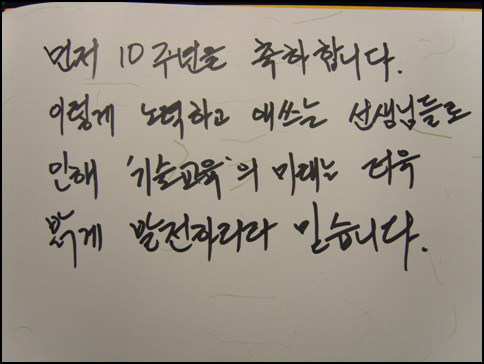 먼저 10주년을 축하합니다.
이렇게 노력하고 애쓰는 선생님들로
인해 '기술교육'의 미래는 더욱
밝게 발전하리라 믿습니다.